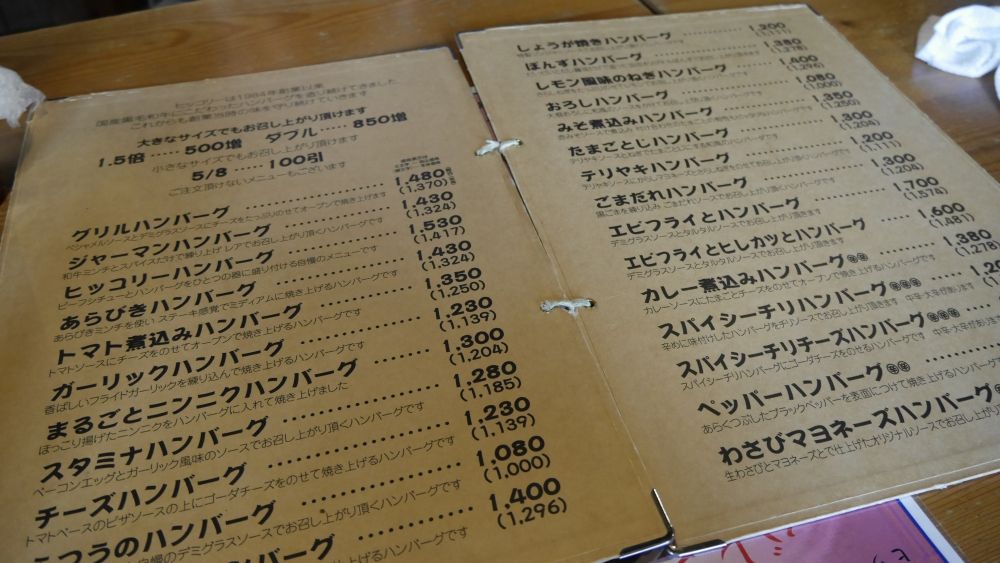 ヒッコリーは1984年創業以来
国産黒毛和牛にこだわったハンバーグを作り続けてきました
これからも創業当時の味を守り続けていきます
大きなサイズでもお召し上がり頂けます
1.5倍 ····· 500増 ダブル ····· 850増
小さなサイズでもお召し上がり頂けます
5/8 ····· 100引
ご注文頂けないメニューもございます
グリルハンバーグ 1,480
ベシャメルソースとデミグラスソースにチーズをたっぷりのせてオーブンで焼き上げます (1,370)
ジャーマンハンバーグ 1,430
和牛ミンチとスパイスだけで練り上げ レアでお召し上がり頂くハンバーグです (1,324)
ヒッコリーハンバーグ 1,530
ビーフシチューとハンバーグをひとつの器に盛り付ける自慢のメニューです (1,417)
あらびきハンバーグ 1,430
あらびきミンチを使い ステーキ感覚でミディアムに焼き上げるハンバーグです (1,324)
トマト煮込みハンバーグ 1,350
トマトソースにチーズをのせてオーブンで焼き上げるハンバーグです (1,250)
ガーリックハンバーグ 1,230
香ばしいフライドガーリックを練り込んで焼き上げるハンバーグです (1,139)
まるごとニンニクハンバーグ 1,300
ほっこり揚げたニンニクをハンバーグに入れて焼き上げました (1,204)
スタミナハンバーグ 1,280
ベーコンエッグとガーリック風味のソースでお召し上がり頂くハンバーグです (1,185)
チーズハンバーグ 1,230
トマトベースのピザソースの上にゴーダチーズをのせて焼き上げるハンバーグです (1,139)
ふつうのハンバーグ 1,080
自慢のデミグラスソースでお召し上がり頂くハンバーグです (1,000)
ハンバーグ 1,400
焼き上げるハンバーグです (1,296)
しょうが焼きハンバーグ 1,200
(1,111)
ぽんずハンバーグ 1,380
(1,278)
レモン風味のねぎハンバーグ 1,400
(1,296)
おろしハンバーグ 1,080
(1,000)
みそ煮込みハンバーグ 1,350
(1,250)
たまごとじハンバーグ 1,300
(1,204)
テリヤキハンバーグ 1,200
(1,111)
ごまだれハンバーグ 1,300
黒ごまを練り込み ごまだれソースでお召し上がり頂くハンバーグです (1,204)
エビフライとハンバーグ 1,700
デミグラスソースとタルタルソースでお召し上がり頂きます (1,574)
エビフライとヒレカツとハンバーグ 1,600
デミグラスソースとタルタルソースでお召し上がり頂きます (1,481)
カレー煮込みハンバーグ 1,380
カレーソースにたまごとチーズをのせてオーブンで焼き上げるハンバーグです (1,278)
スパイシーチリハンバーグ
辛めに味付けしたハンバーグをチリソースでお召し上がり頂きます 中辛・大辛が有ります
スパイシーチリチーズハンバーグ
スパイシーチリハンバーグにゴーダチーズをのせるハンバーグです
ペッパーハンバーグ
あらくつぶしたブラックペッパーを表面につけて焼き上げるハンバーグ
わさびマヨネーズハンバーグ
生わさびとマヨネーズとで仕上げたオリジナルソースでお召し上がり